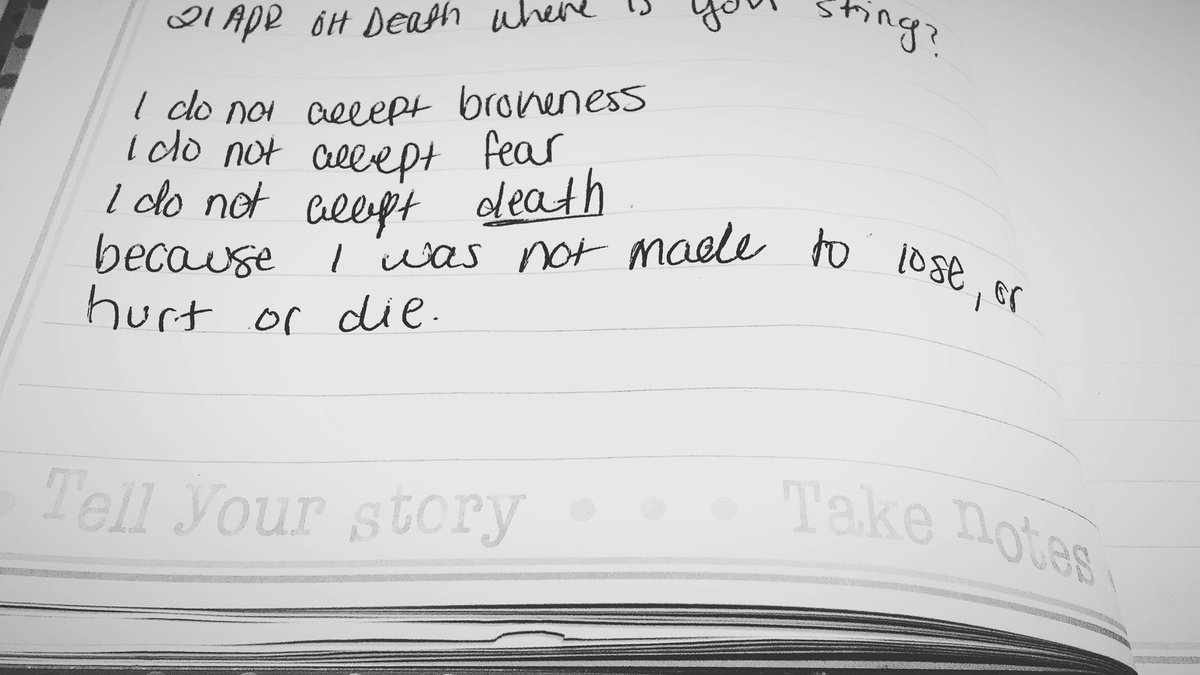 21 APR OH Death where is your sting?
I do not accept brokeness
I do not accept fear
I do not accept death
because I was not made to lose, or
hurt or die.
Tell your story • • • Take notes